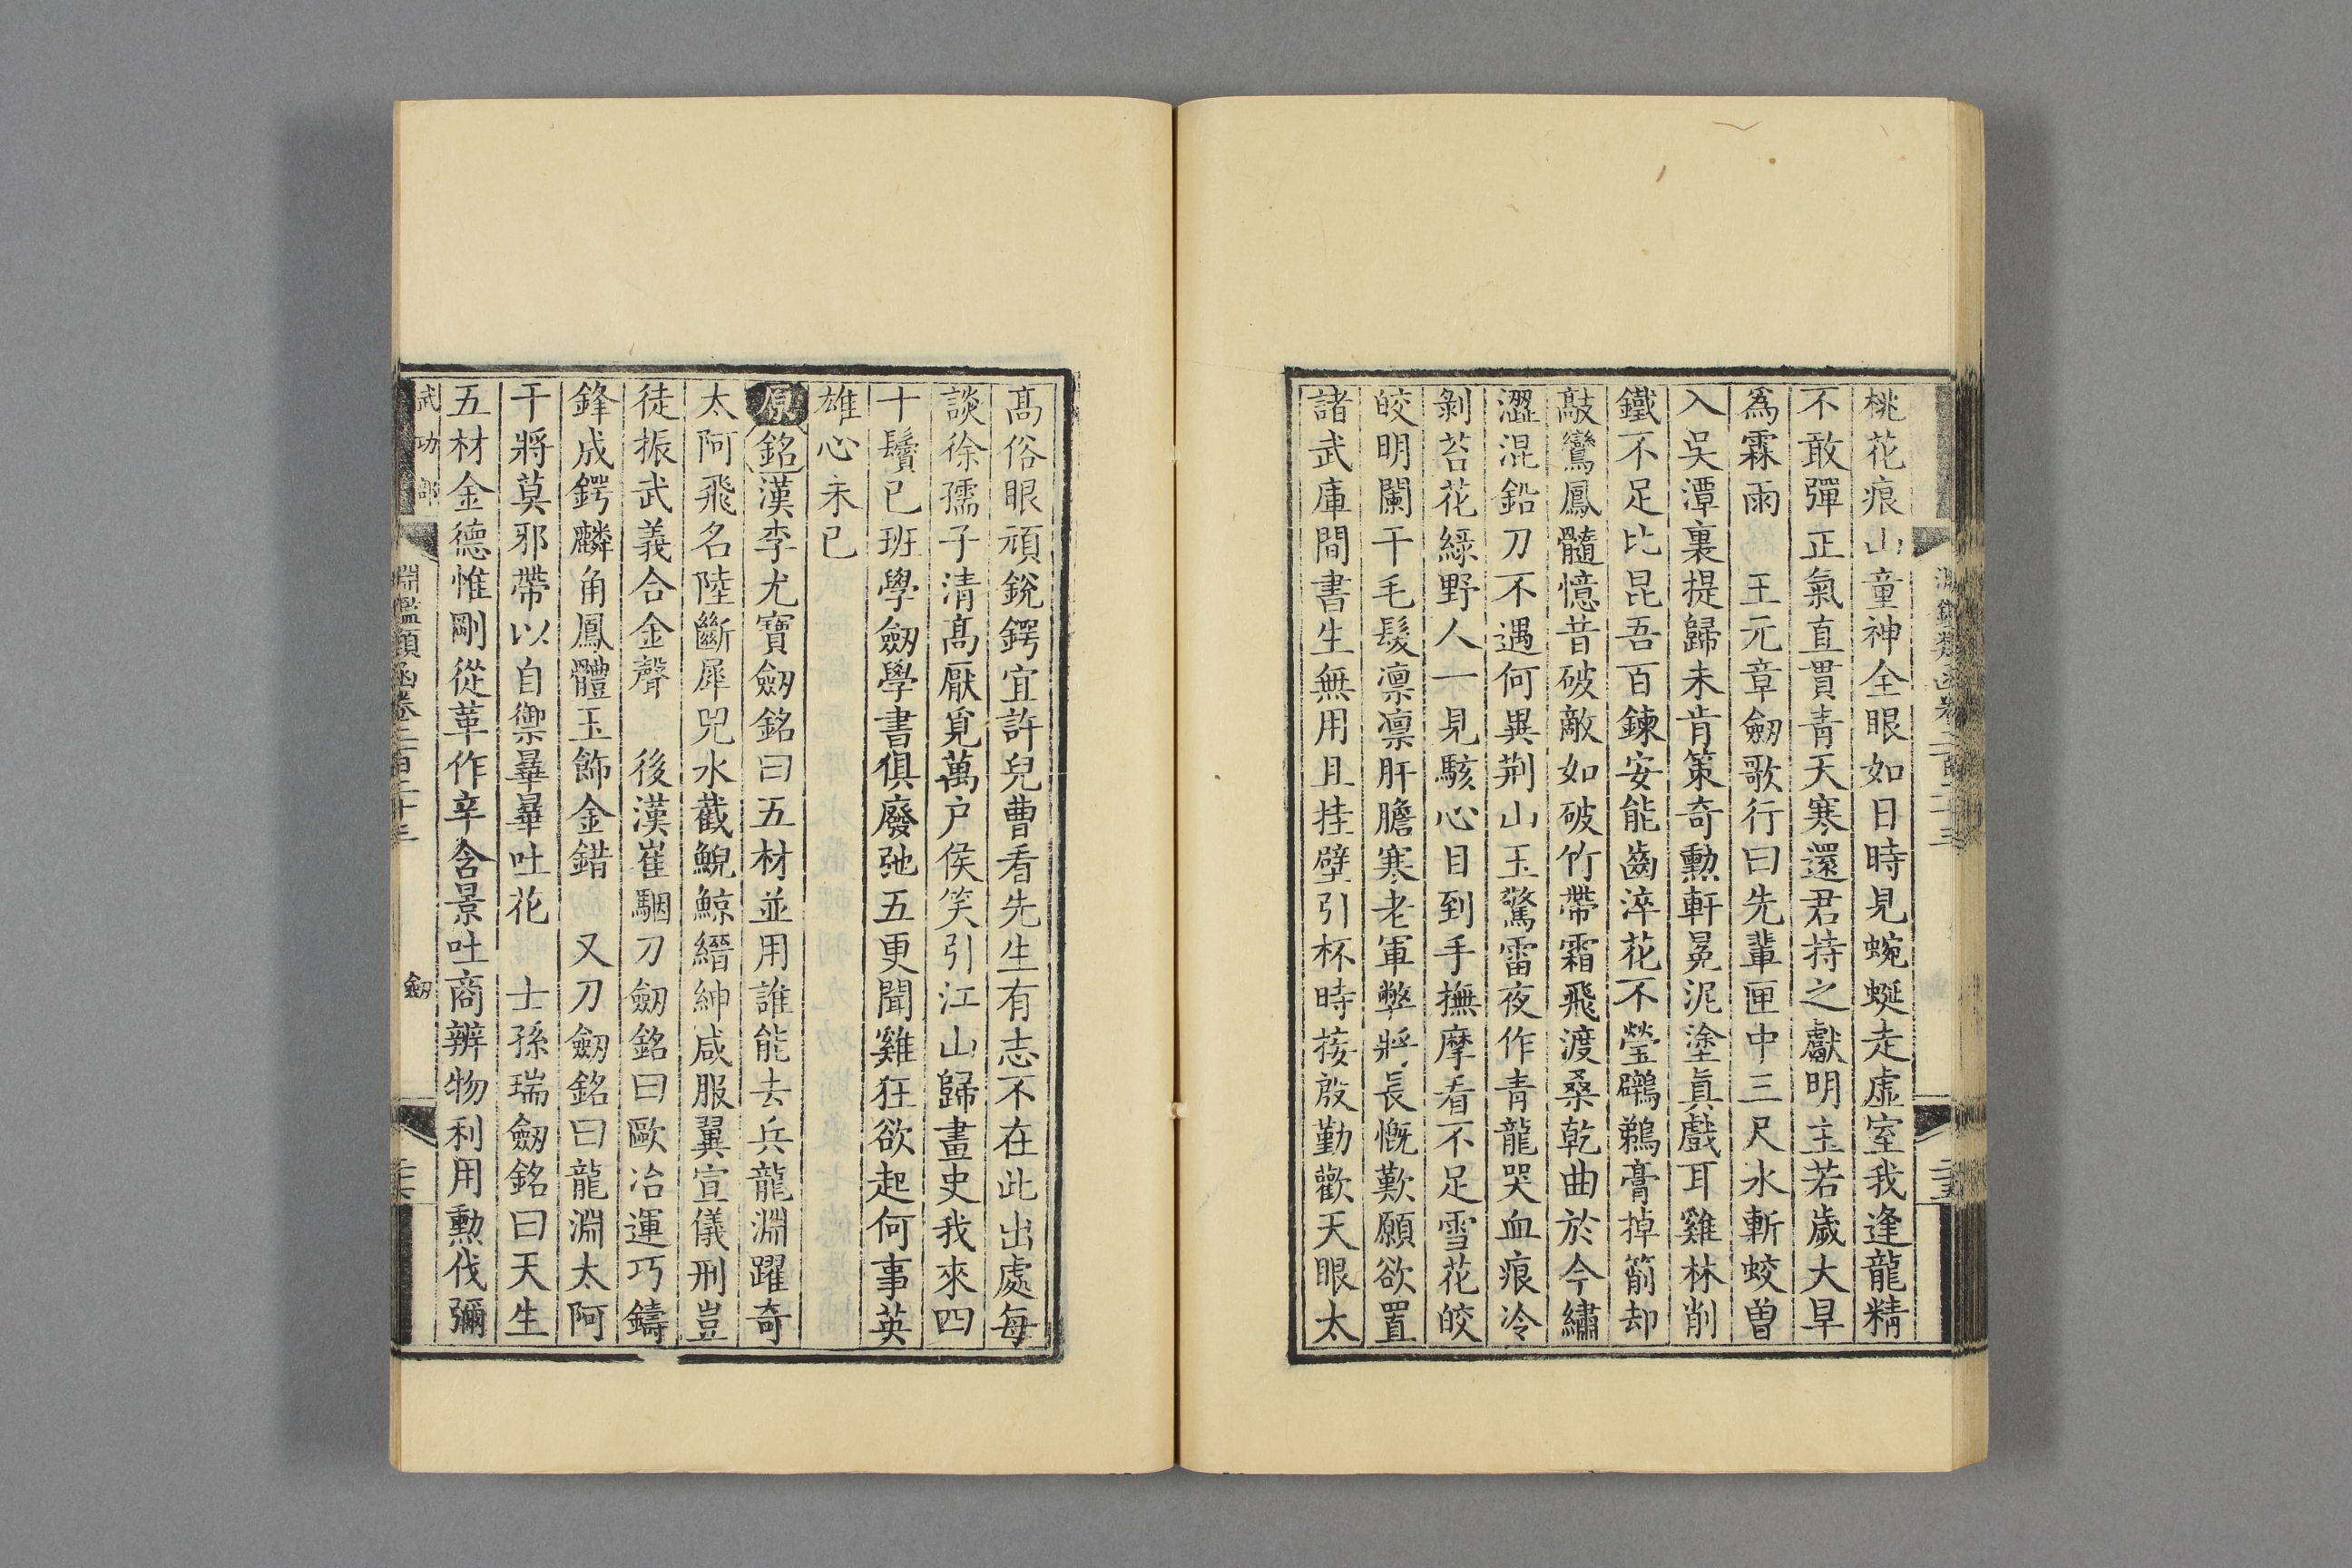 桃花痕山童神全眼如日時見蜿蜒走虚室我逢龍精
不敢彈正氣直貫青天寒還君持之獻明主若歲大旱
爲霖雨　王元章劒歌行曰先輩匣中三尺水斬蛟曽
入吳潭裏提歸未肯策奇勲軒冕泥塗眞戲耳雞林削
鐵不足比昆吾百鍊安能齒淬花不瑩鸊鵜膏掉箾却
敲鸞鳳髓憶昔破敵如破竹帶霜飛渡桑乾曲於今繡
澀混鉛刀不遇何異荆山玉驚雷夜作青龍哭血痕冷
剝苔花綠野人一見駭心目到手撫摩看不足雪花皎
皎明闌干毛髮凛凛肝膽寒老軍弊將長慨歎願欲置
諸武庫間書生無用且挂壁引杯時接殷勤歡天眼太
高俗眼頑銳鍔宜許兒曹看先生有志不在此出處每
談徐孺子清高厭覓萬户侯笑引江山歸畫史我來四
十鬢已班學劒學書俱廢弛五更聞雞狂欲起何事英
雄心未已
原銘漢李尤寶劒銘曰五材並用誰能去兵龍淵躍奇
太阿飛名陸斷犀兕水截鯢鯨縉紳咸服翼宣儀刑豈
徒振武義合金聲　後漢崔駰刀劒銘曰歐冶運巧鑄
鋒成鍔麟角鳳體玉飾金錯　又刀劒銘曰龍淵太阿
干將莫邪帶以自禦畢畢吐花　士孫瑞劒銘曰天生
五材金德惟剛從革作辛含景吐商辨物利用勲伐彌
武功部　淵鑑類函卷二百二十三　劒　二十六